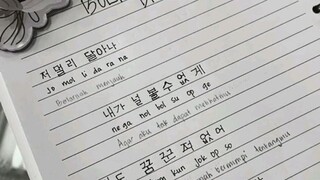 저 멀리 달아나
jo mol li da ra na
Berlarilah menjauh
내가 널 볼 수 없게
ne ga nol bol su op ge
Agar aku tak dapat melihatmu
꿈 꾼 적 없어
kun jok op so
bermimpi tentangmu